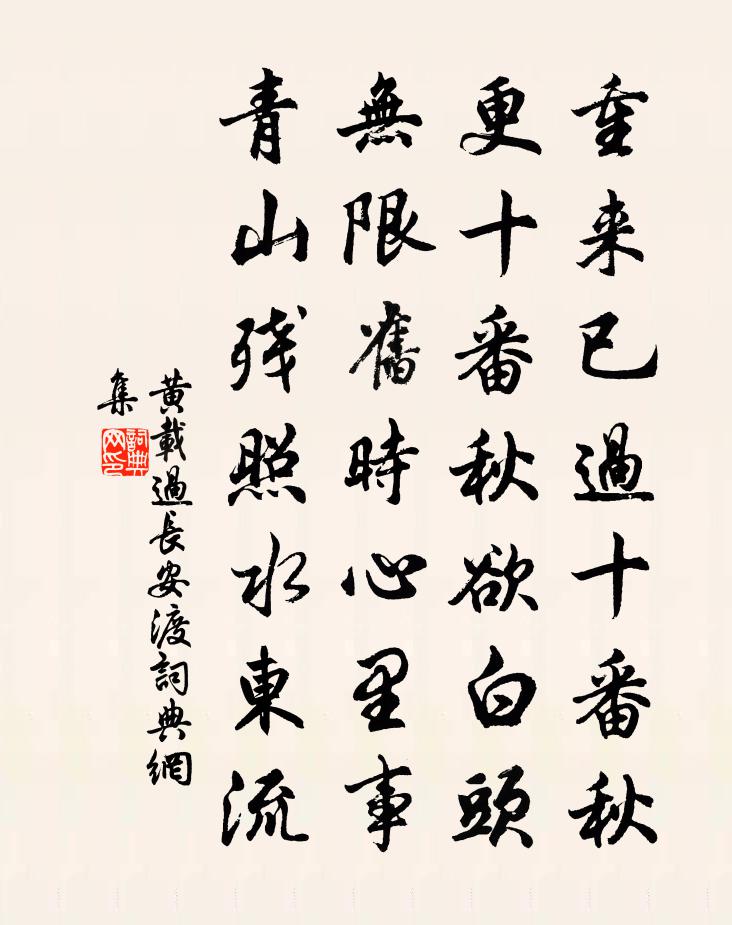 重来已過十番秋
更十番秋欲白頭
無限舊時心里事
青山残照水東流
黄載過長安渡詞典網
集
詞典
网印